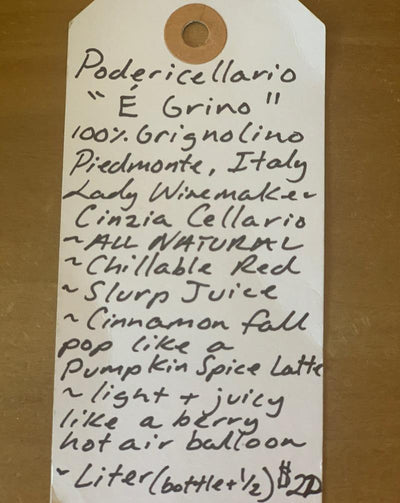 Podericellario
"É Grino"
100% Grignolino
Piedmonte, Italy
Lady Winemaker
Cinzia Cellario
~ALL NATURAL
~Chillable Red
~Slurp Juice
~Cinnamon fall
pop like a
Pumpkin Spice Latte
~light + juicy
like a berry
hot air balloon
~Liter (bottle + 1/2)